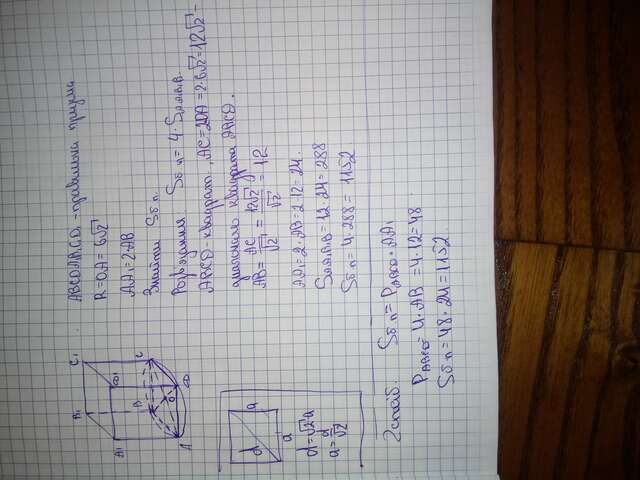 ABCDA₁B₁C₁D₁ - правильна призма
R = OA = 6√2
AA₁ = 2·AB
Знайти Sб.п.
Розв'язання Sб.п = 4·SAA₁B₁B.
ABCD - квадрат, AC = 2OA = 2·6√2 = 12√2 -
діагональ квадрата ABCD.
AB = AC/√2 = 12√2/√2 = 12
AA₁ = 2·AB = 2·12 = 24.
SAA₁B₁B = 12·24 = 288
Sб.п = 4·288 = 1152
B₁
C₁
A₁
D₁
B
C
O
A
D
d
a
a
d = √2·a
a = d/√2
2 спосіб. Sб.п = PABCD·AA₁
PABCD = 4·AB = 4·12 = 48
Sб.п = 48·24 = 1152.